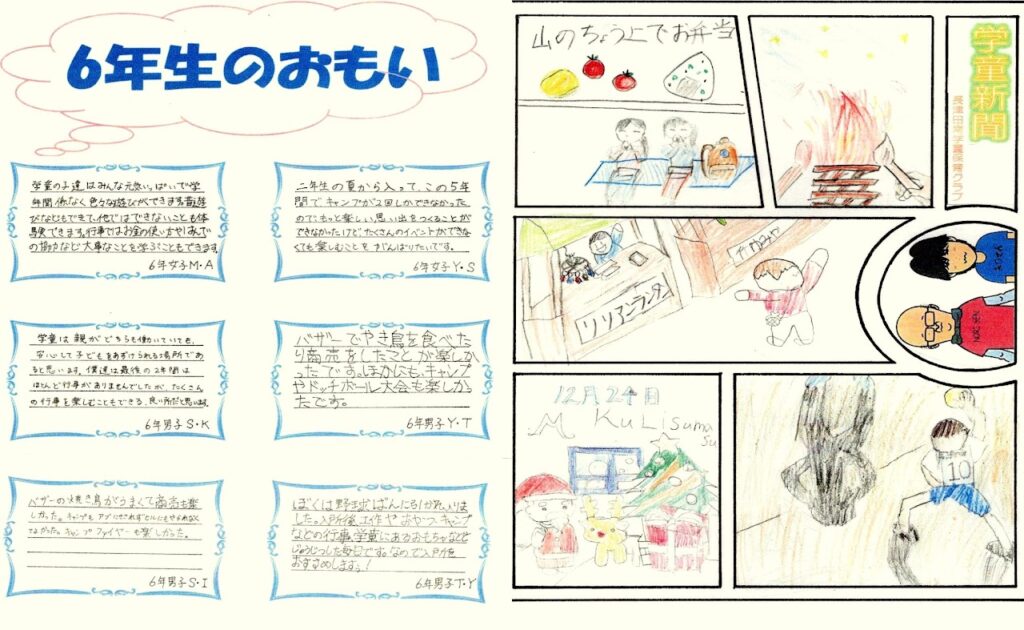 6年生のおもい
学童の子達はみんな元気いっぱいで学
年関係なく色々な遊びができます。昔遊
びなどもできて、他ではできないことも体
験できます。行事ではお金の使い方や
の働きなど大事なことを学ぶこともできます。
6年女子M・A
二年生の夏から入って、この5年
間でキャンプが2回しかできなかった
ので、もっと楽しい思い出をつくることが
できなかったけど、たくさんのイベントができ
なくても楽しむことをがんばりたいです。
6年女子Y・S
学童は親がどちらも働いていても、
安心して子どもをあずけられる場所であ
ると思います。僕達は最後の2年間は
ほとんど行事がありませんでしたが、たくさん
の行事を楽しむこともできる、良い所だと思います。
6年男子S・K
バザーでやき鳥を食べた
り商売をしたことが楽しか
ったです。ほかにも、キャンプ
やドッチボール大会も楽しか
たです。
6年男子Y・T
バザーの焼き鳥がうまくて商売も楽
しかった。キャンプも
よかった。キャンプファイヤーも楽しかった。
6年男子S・I
ぼくは野球
ました。入所後、工作やおやつ、キャンプ
などの行事、学童にあるおもちゃなど
じゅうじつした毎日です。なので入所を
おすすめします!
6年男子T・Y
学童新聞
山のちょう上でお弁当
リリアンランタン
12月24日
M KuLisuma
Su
10